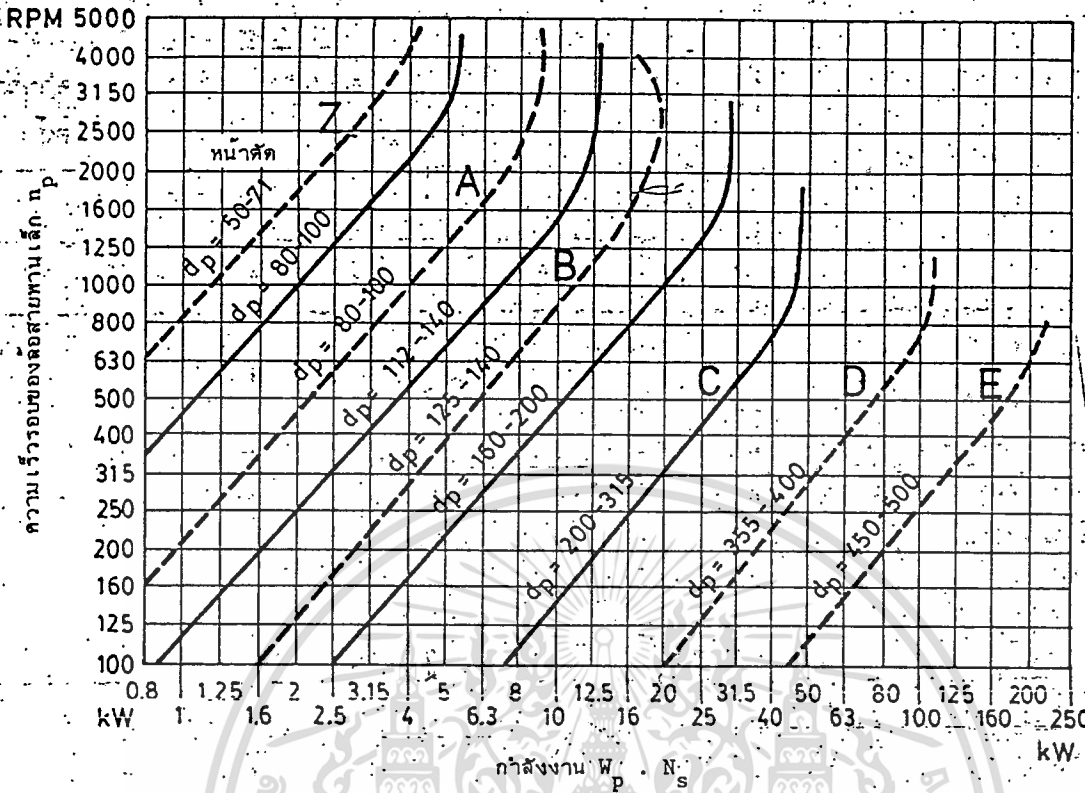 RPM 5000
4000
3150
2500
2000
1600
1250
1000
800
630
500
400
315
250
200
160
125
100
ความเร็วรอบของล้อสายพานเล็ก np
หน้าตัด
Z
A
B
C
D
E
dp = 50-71
dp = 80-100
dp = 80-100
dp = 112-140
dp = 125-140
dp = 160-200
dp = 200-315
dp = 355-400
dp = 450-500
0.8 1.25 2 3.15 5 8 12.5 20 31.5 50 80 125 200
kW 1 1.6 2.5 4 6.3 10 16 25 40 63 100 160 250
kW
กำลังงาน Wp . Ns